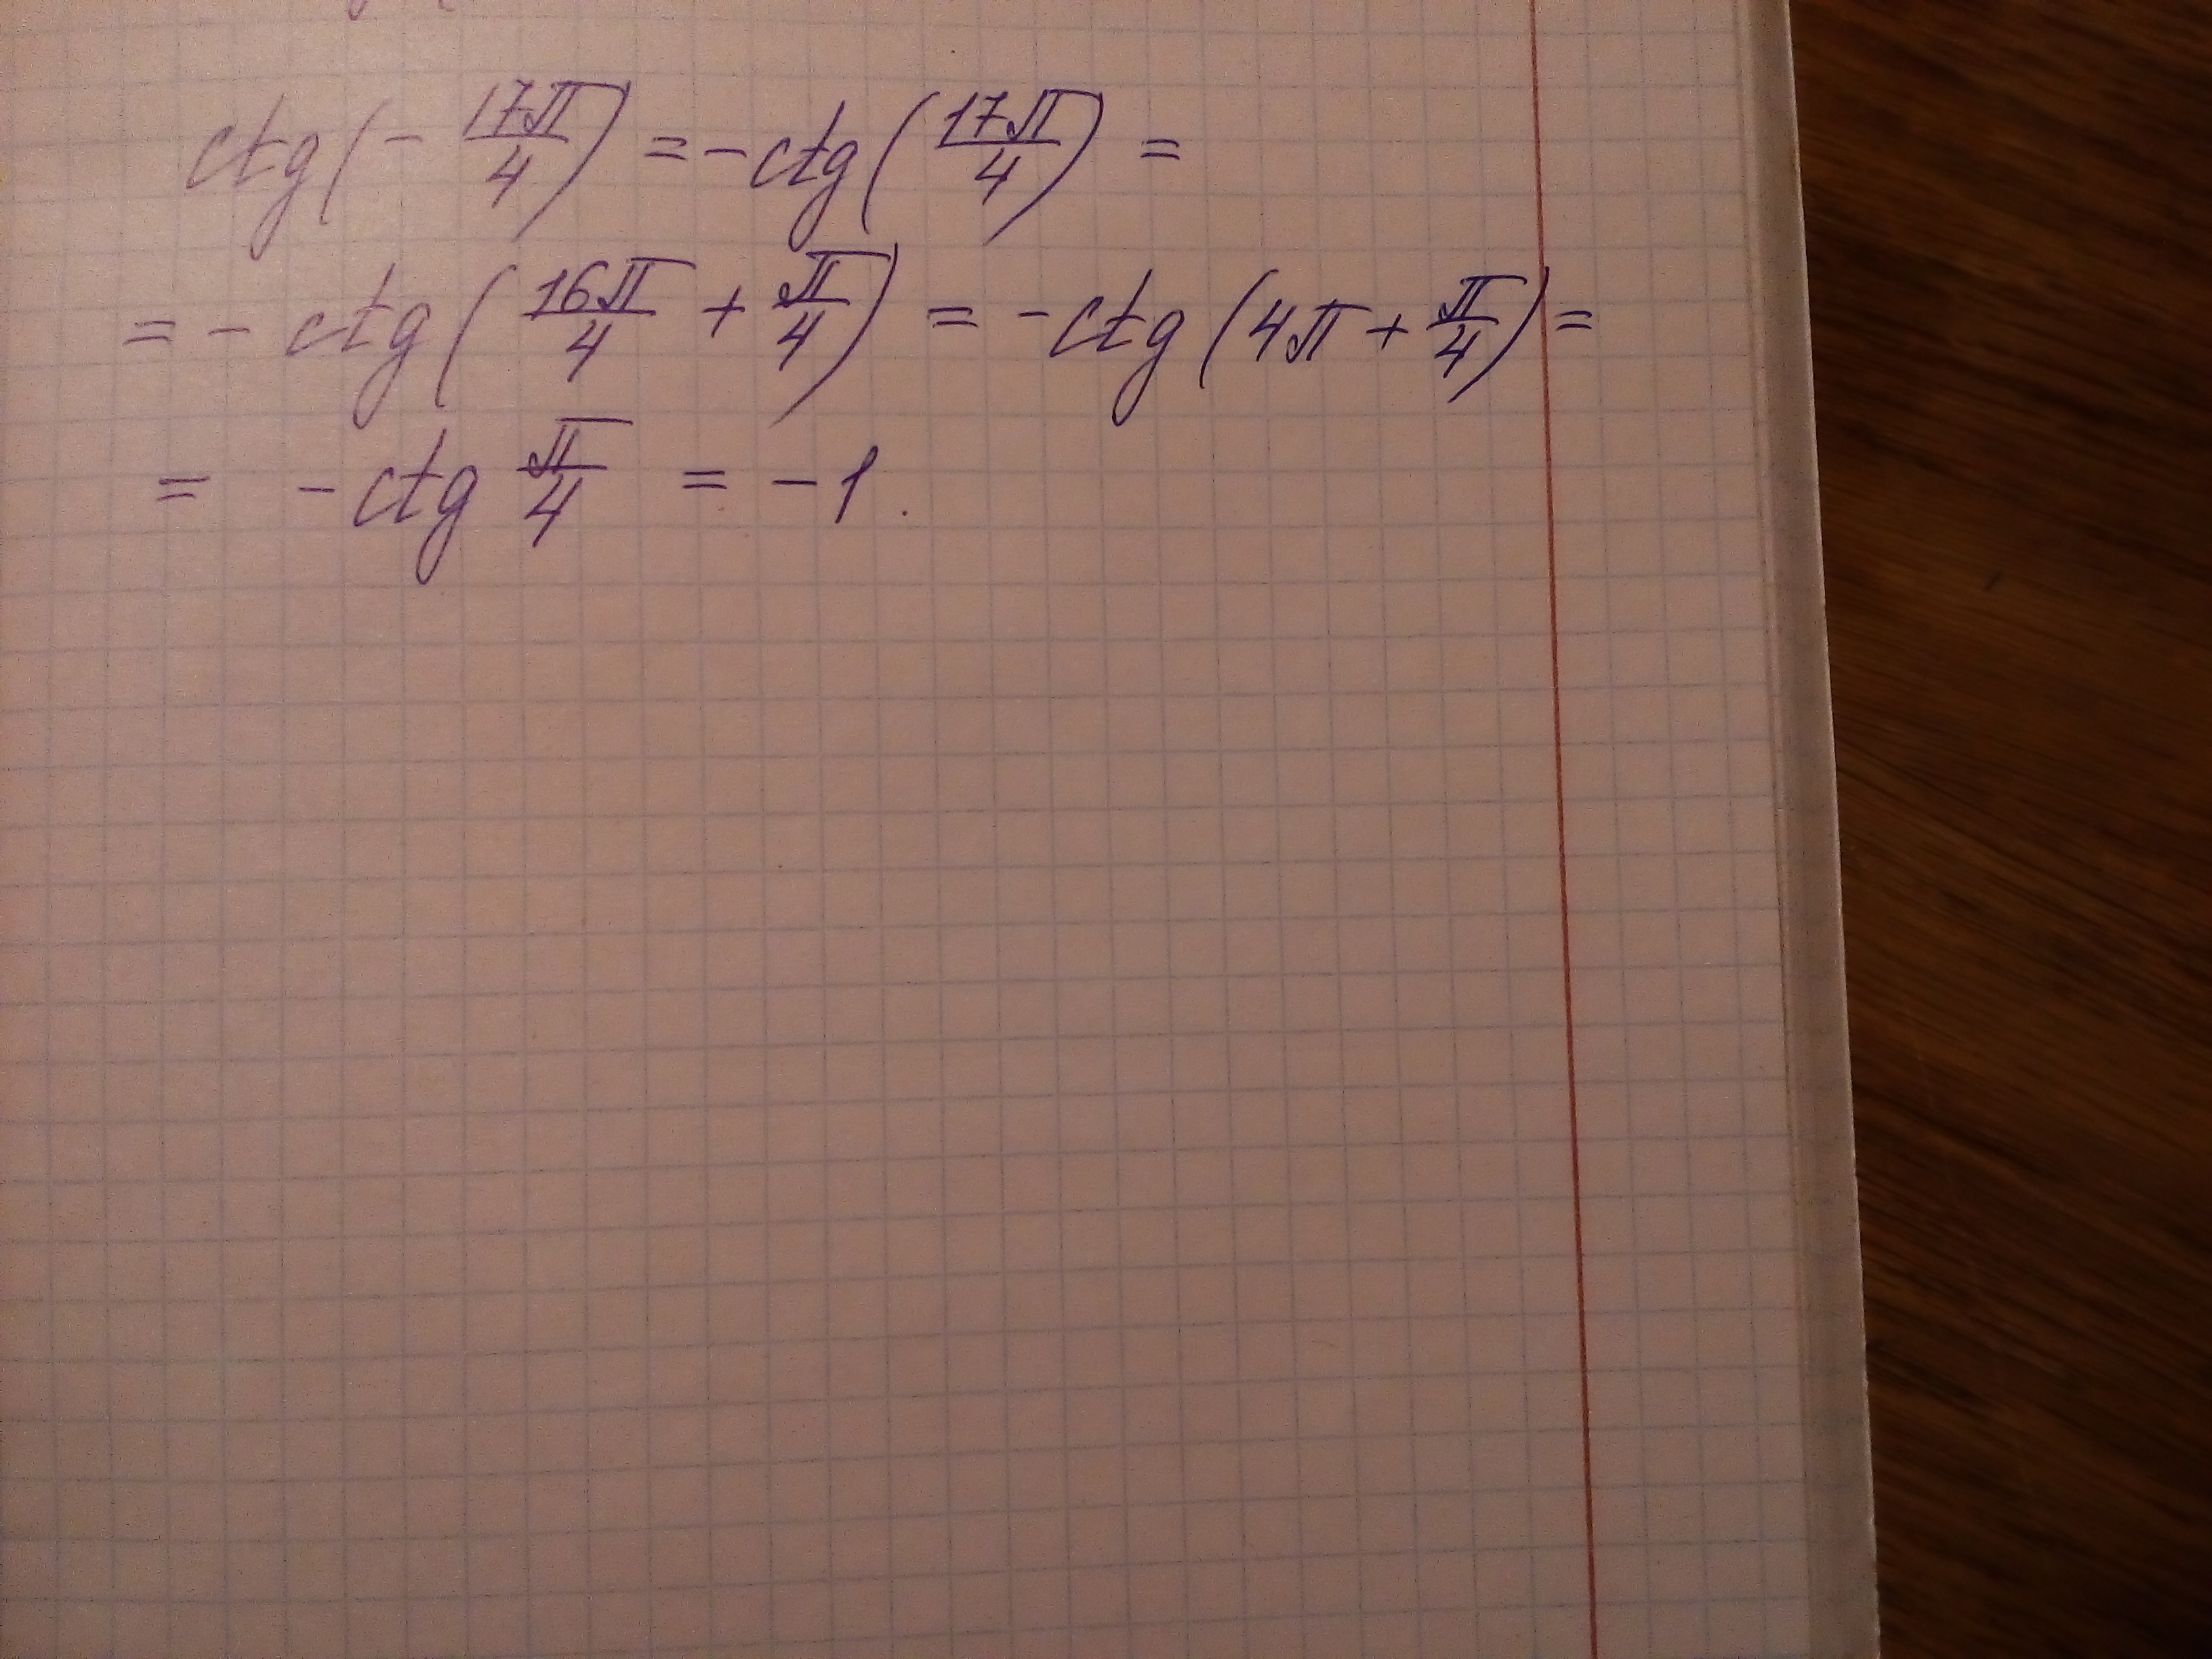 ctg(-17π/4) = -ctg(17π/4) =
= - ctg(16π/4 + π/4) = -ctg(4π + π/4) =
= -ctg π/4 = -1.